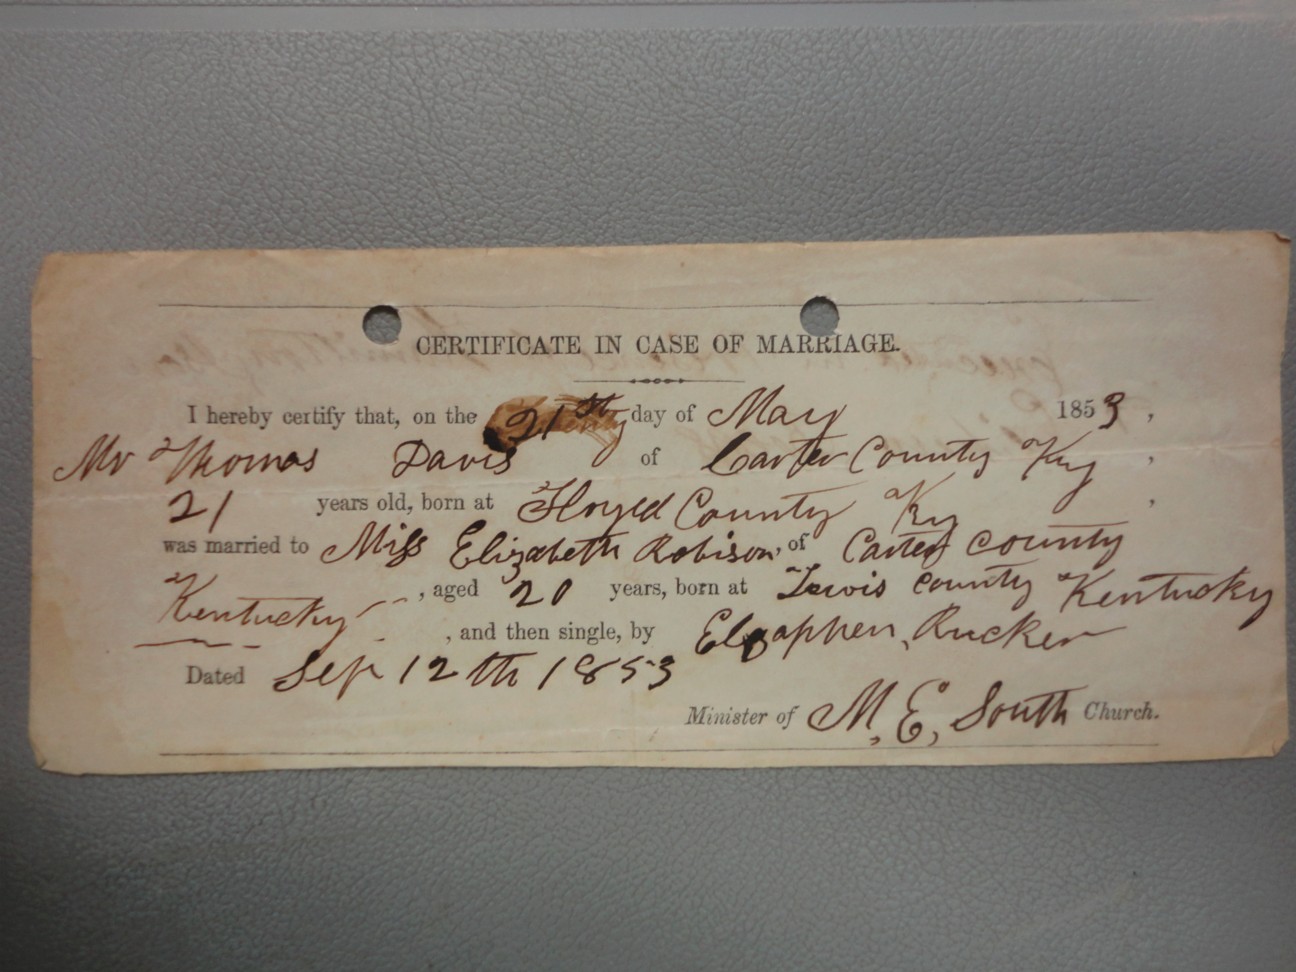 CERTIFICATE IN CASE OF MARRIAGE.
I hereby certify that, on the 21st day of May 1853,
Mr Thomas Davis of Carter County Ky,
21 years old, born at Floyed County Ky,
was married to Miss Elizabeth Robison, of Carter county
Kentucky, aged 20 years, born at Lewis county Kentucky
, and then single, by Elzaphen Rucker
Dated Sep 12th 1853
Minister of M, E, South Church.